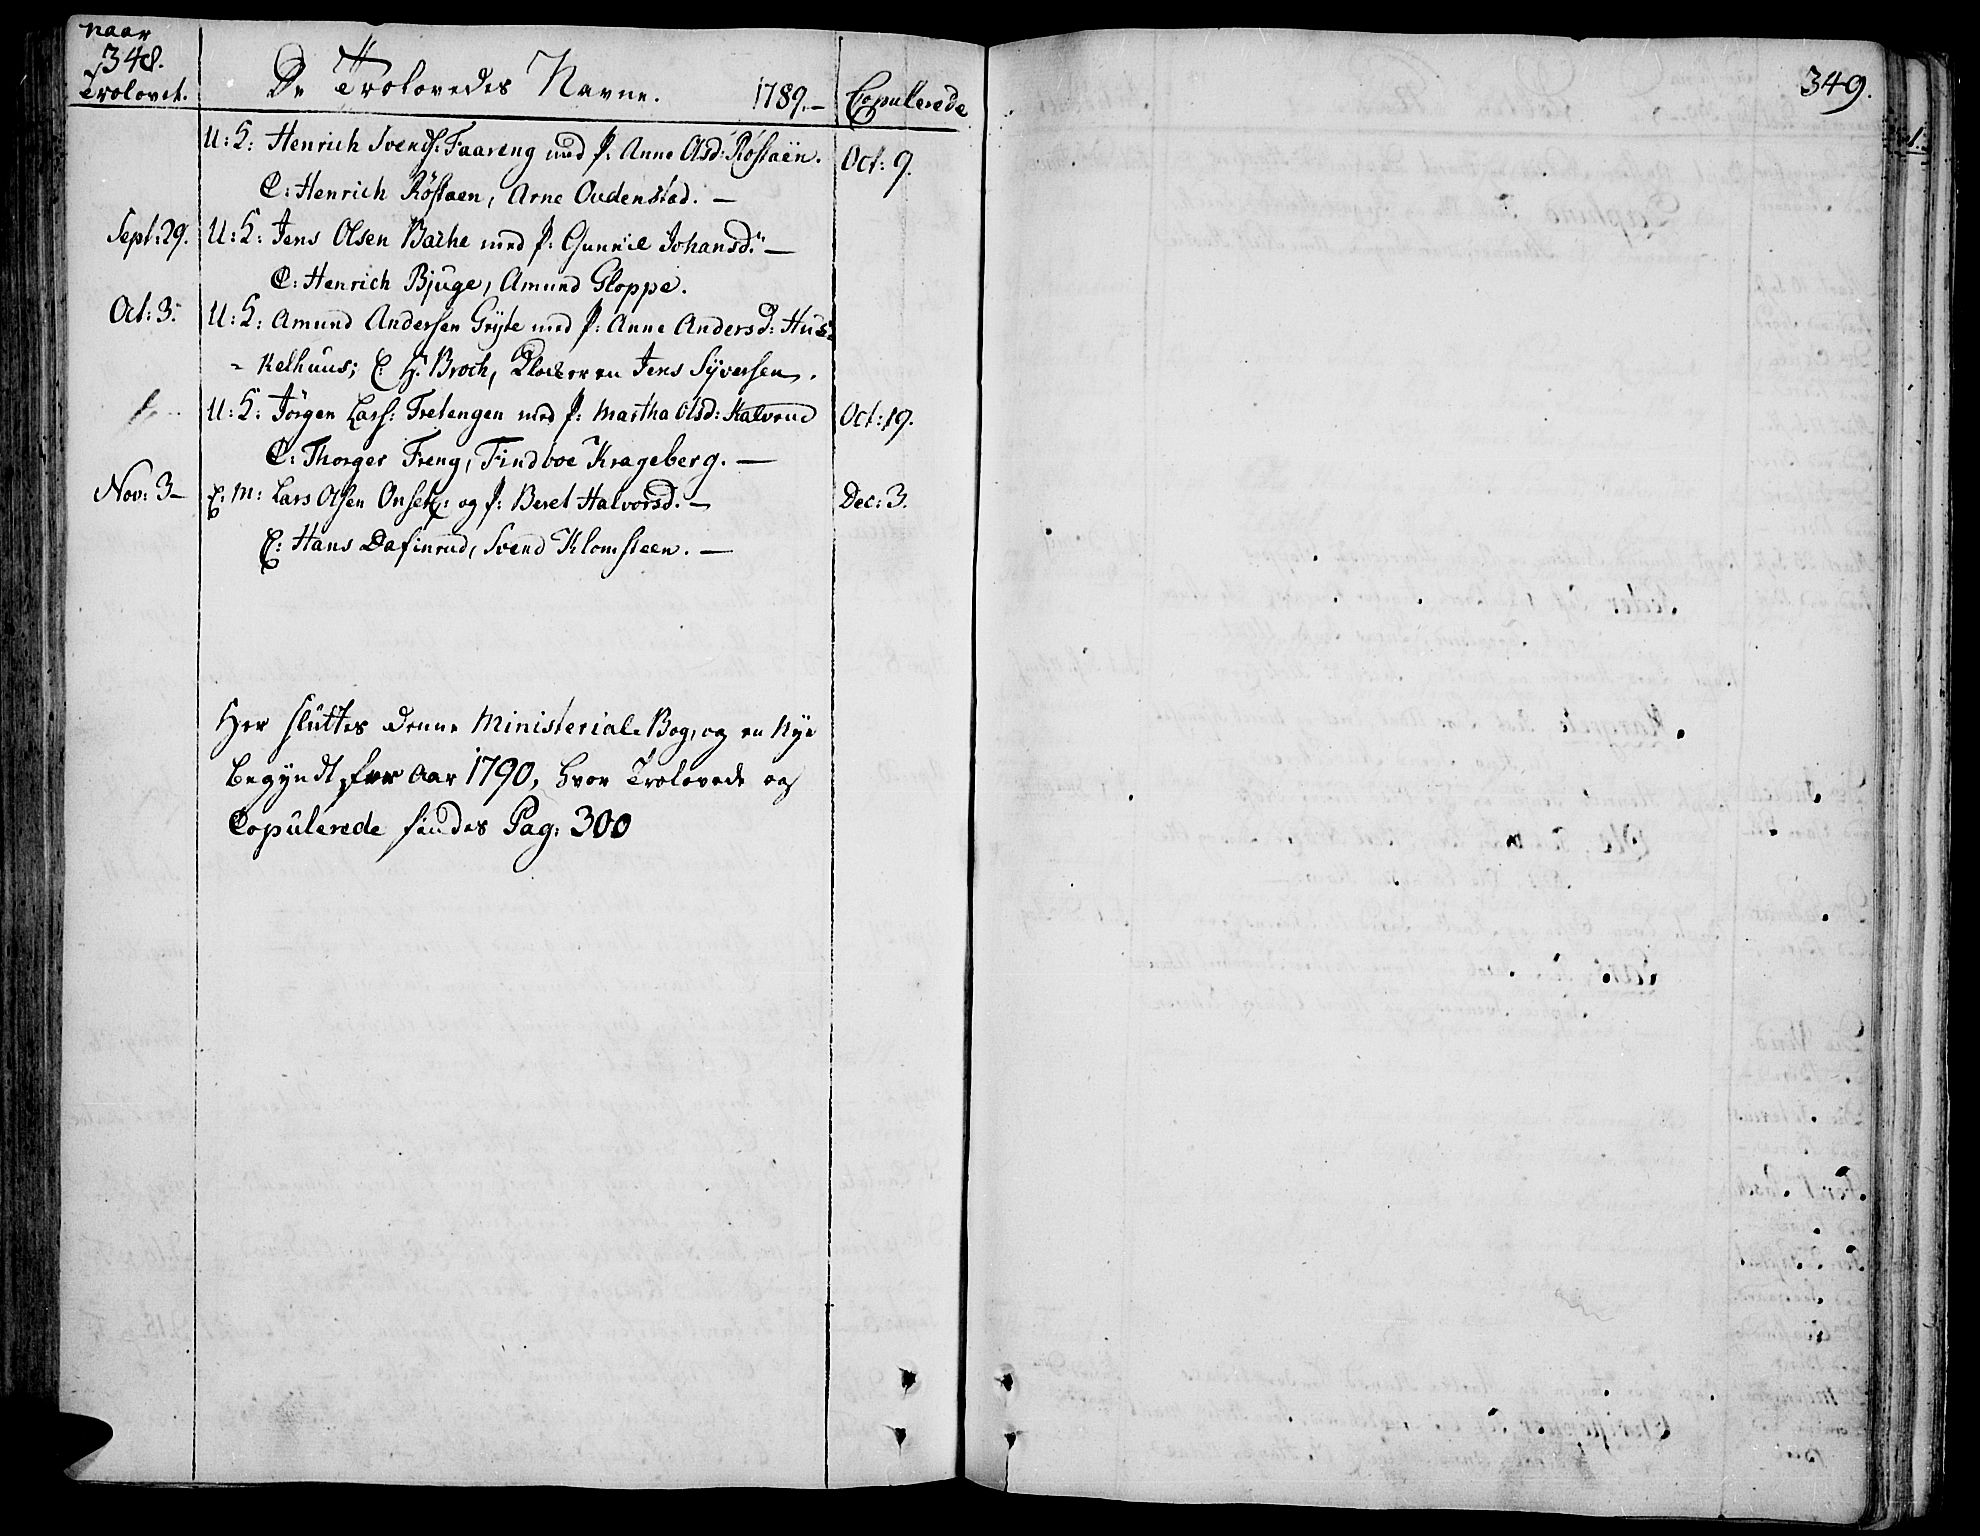 naar
348.
Trolovet.
De Trolovedes Navne. 1789.— Copulerede
U: K: Henrich Svends: Faareng med P: Anne Olsd: Röstaën. Oct: 9.
C: Henrich Röstaen, Arne Oudenstad. —
Sept: 29. U: K: Jens Olsen Bache med P: Gunnil Johansd: —
C: Henrich Bjuge, Amund Gloppe.
Oct: 3. U: K: Amund Andersen Gryte med P: Anne Andersd: Hus-
- kelhuus; C: H. Broch, Klockeren Jens Syversen.
U: K: Jörgen Lars: Tretengen med P: Martha Olsd: Kalvrud Oct: 19.
C: Thorger Freng, Findboe Krageberg. —
Nov: 3 — E: M: Lars Olsen Onset: og P: Beret Halvorsd. — Dec: 3.
C: Hans Dafinrud, Svend Klomsteen. —
Her sluttes denne Ministerial-Bog, og en Nye
begyndt for Aar 1790, hvor Trolovede og
Copulerede findes Pag: 300
349.